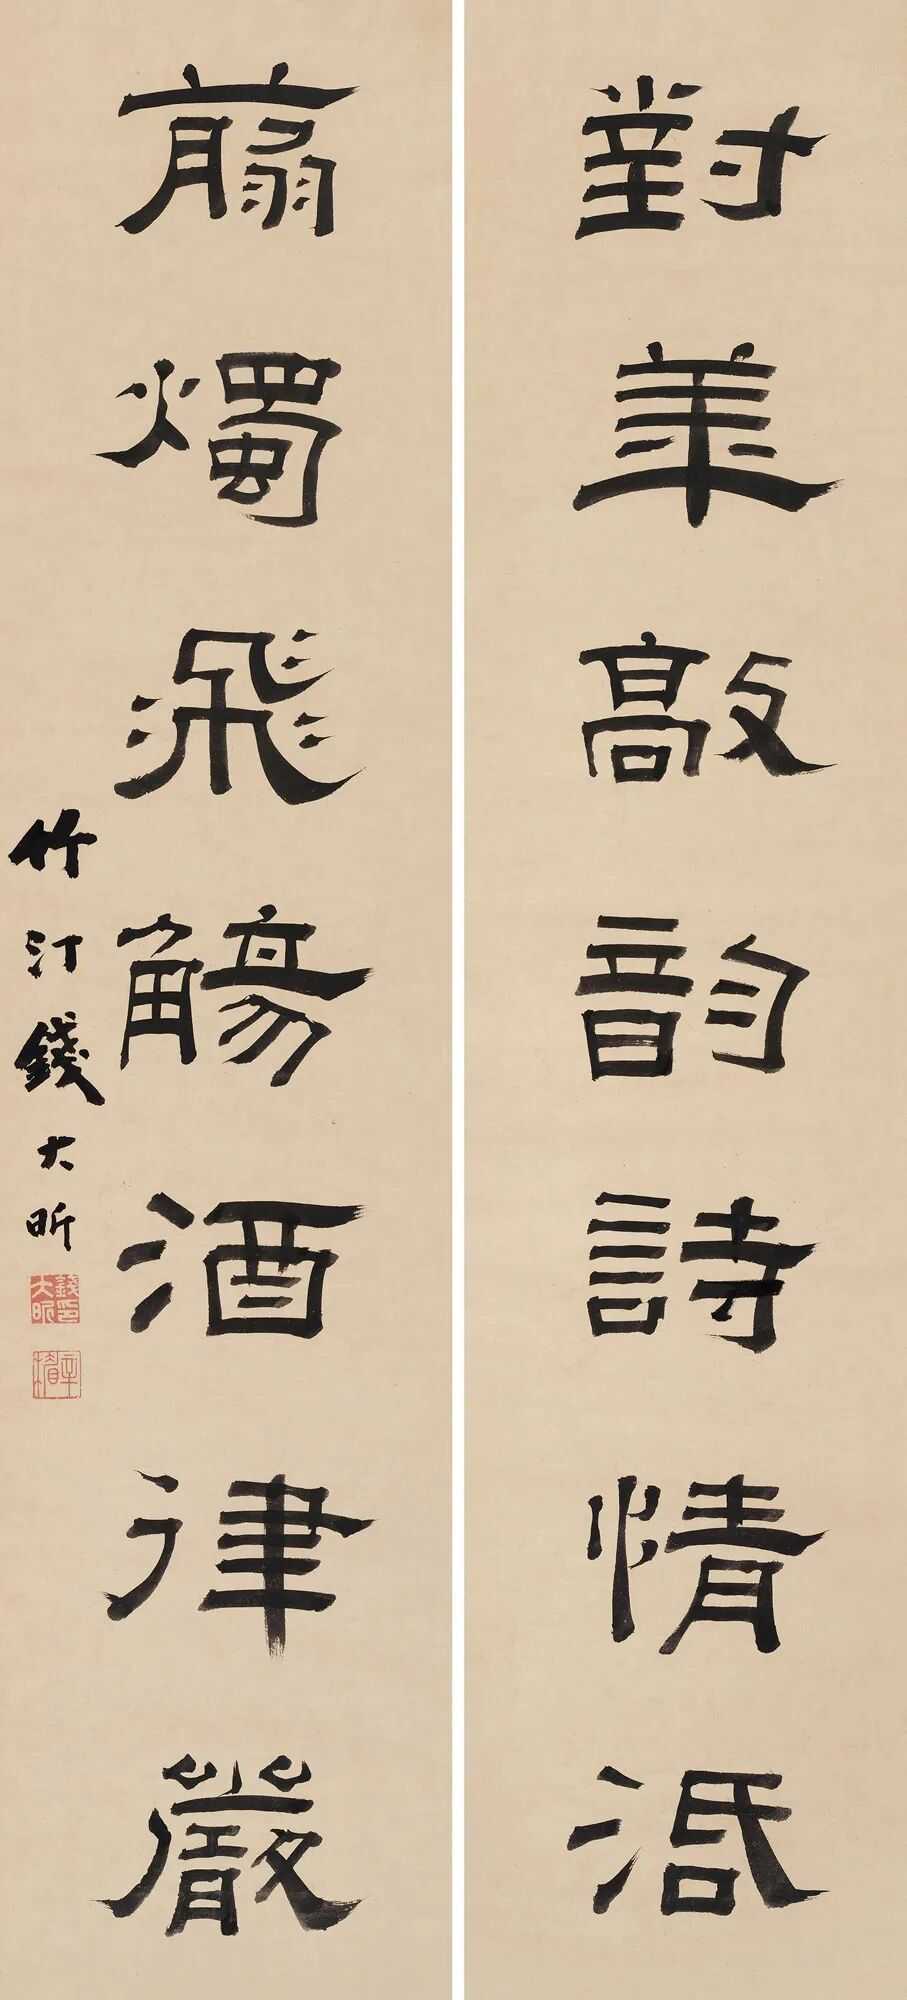 對華敲韵詩情活
翦燭飛觴酒律嚴
竹汀錢大昕
錢大昕印
辛楣